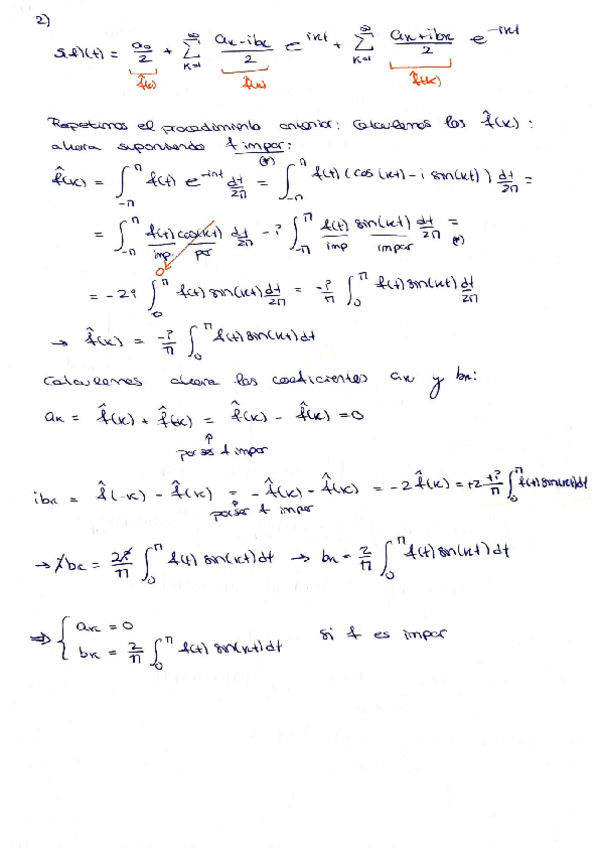 2)
Sf(t) = a₀/2 + Σ_{k=1}^{∞} (aₖ - ibₖ)/2 e^{ikt} + Σ_{k=1}^{∞} (aₖ + ibₖ)/2 e^{-ikt}
f̂(0) f̂(k) f̂(-k)
Repetimos el procedimiento anterior: calculemos los f̂(k):
ahora suponiendo f impar:
(*)
f̂(k) = ∫_{-π}^{π} f(t) e^{-int} dt/2π = ∫_{-π}^{π} f(t) (cos(kt) - i sin(kt)) dt/2π =
= ∫_{-π}^{π} f(t) cos(kt) dt/2π - i ∫_{-π}^{π} f(t) sin(kt) dt/2π =
imp. par imp impar (*)
0
= -2i ∫_{0}^{π} f(t) sin(kt) dt/2π = -i/π ∫_{0}^{π} f(t) sin(kt) dt/2π
→ f̂(k) = -i/π ∫_{0}^{π} f(t) sin(kt) dt
Calculemos ahora los coeficientes aₖ y bₖ:
aₖ = f̂(k) + f̂(-k) = f̂(k) - f̂(k) = 0
↑
por f impar
ibₖ = f̂(-k) - f̂(k) = -f̂(k) - f̂(k) = -2 f̂(k) = +2 +i/π ∫_{0}^{π} f(t) sin(kt) dt
por ser f impar
→ ibₖ = 2i/π ∫_{0}^{π} f(t) sin(kt) dt → bₖ = 2/π ∫_{0}^{π} f(t) sin(kt) dt
⇒ { aₖ = 0
bₖ = 2/π ∫_{0}^{π} f(t) sin(kt) dt si f es impar